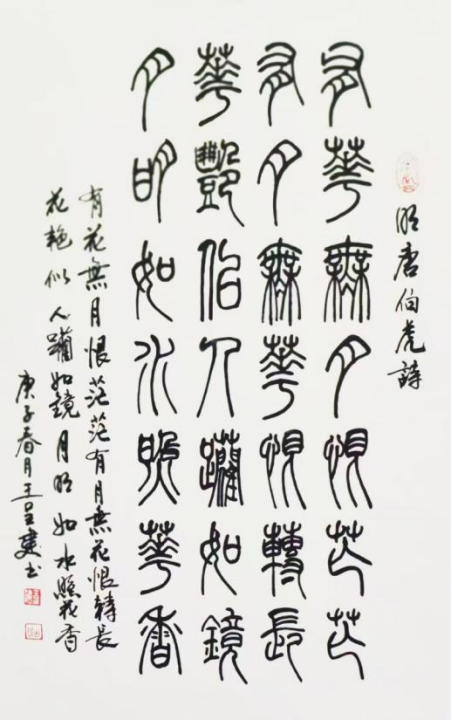 明唐伯虎詩
有華無月恨茫茫
有月無華恨轉長
華豔似人躪如鏡
月明如水照華香
有花無月恨茫茫有月無花恨轉長
花艷似人躪如鏡月明如水照花香
庚子春月王呈建书